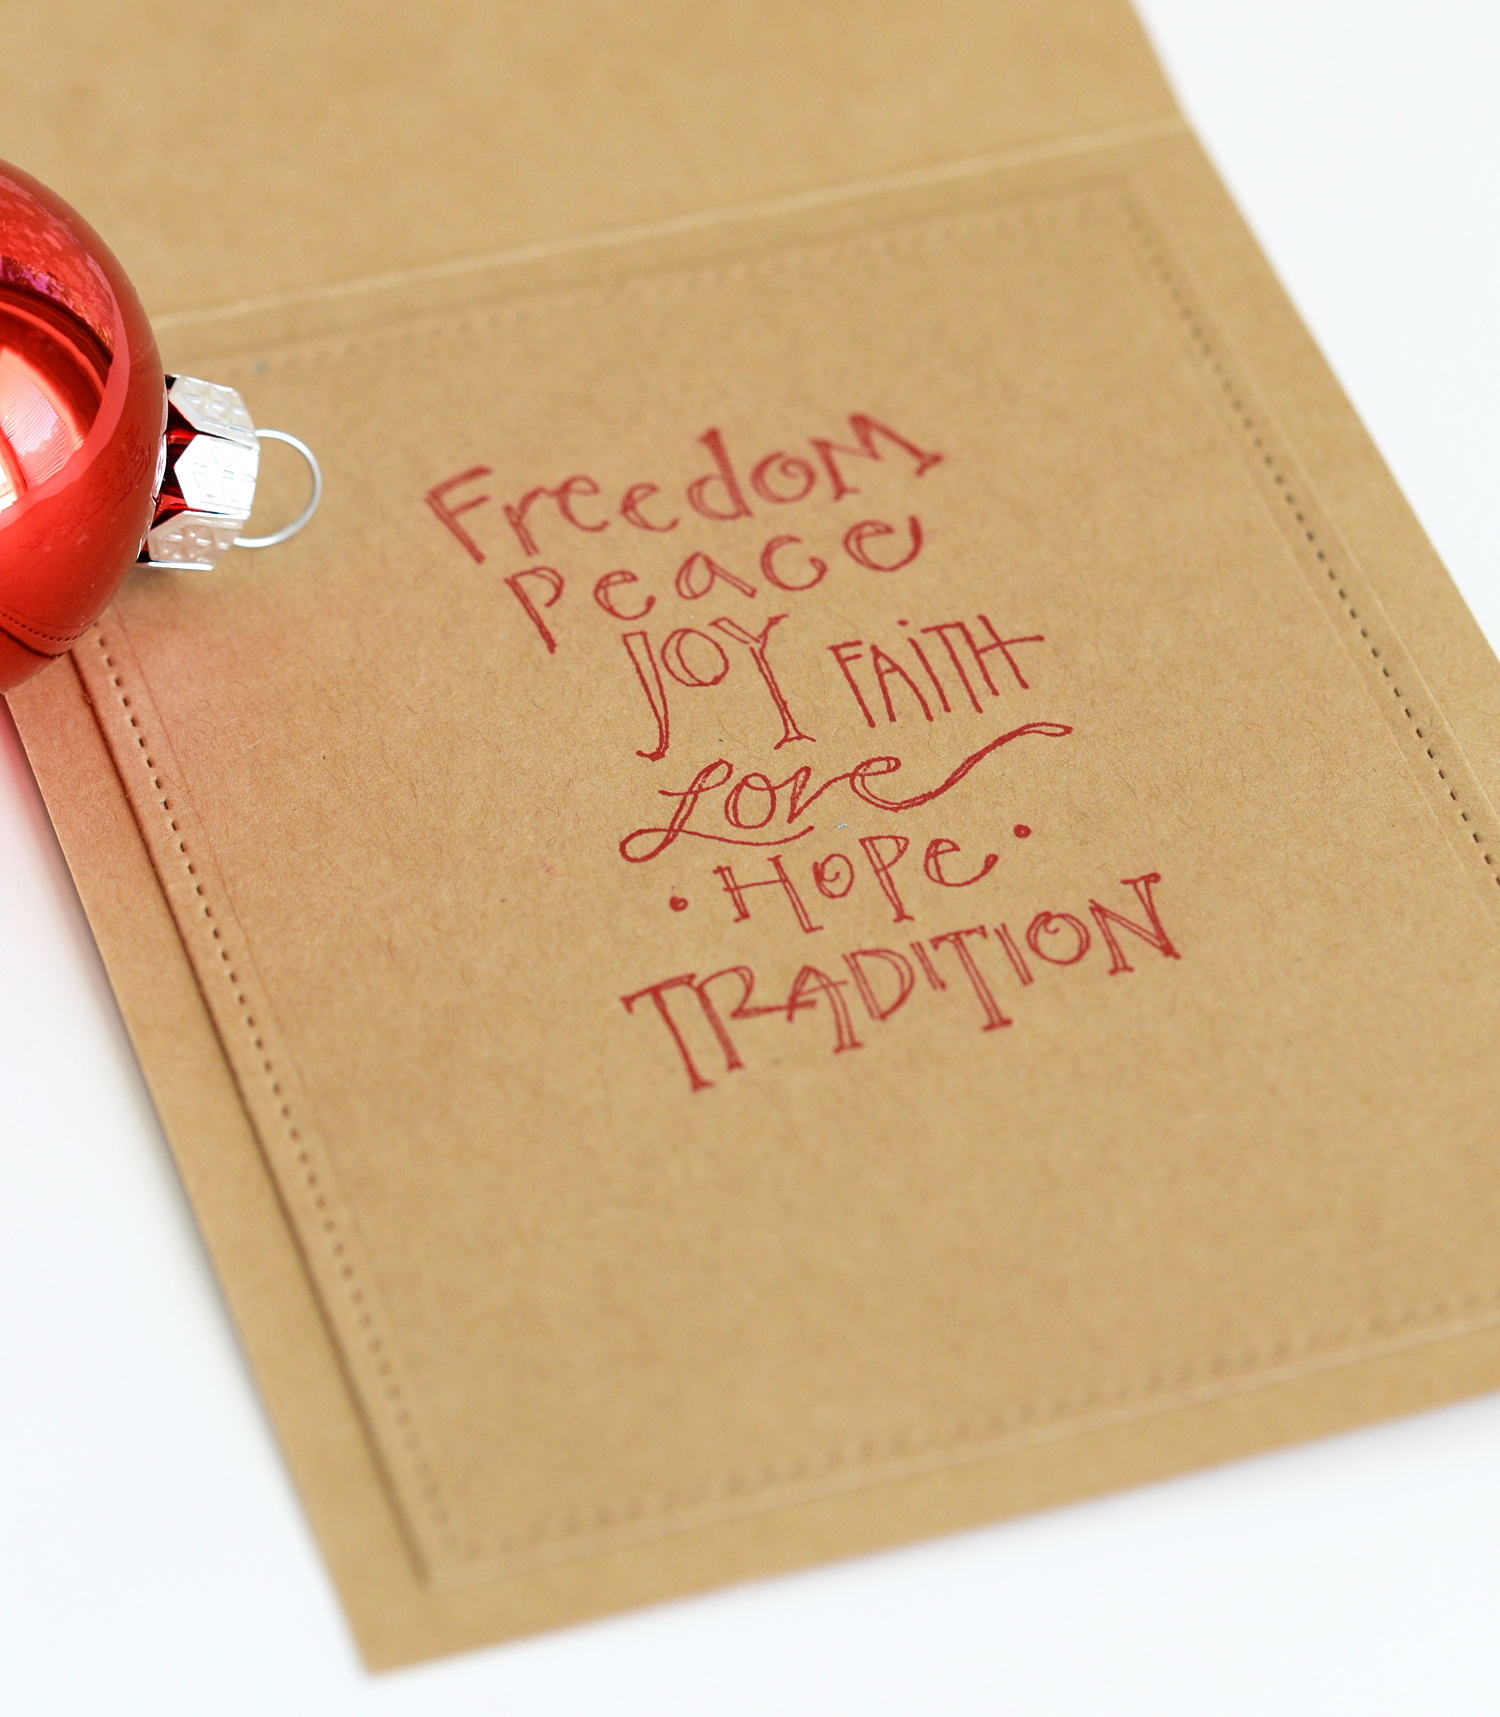 Freedom
Peace
JOY FAiTH
Love
• HOPe •
TRADiTiON